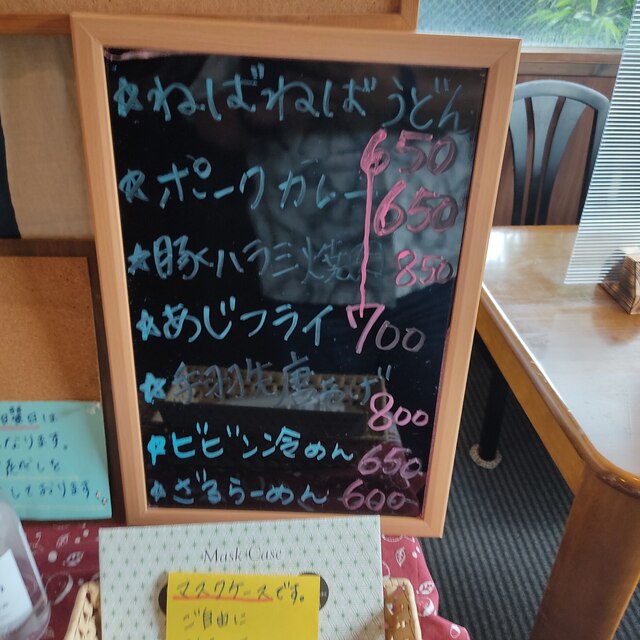 ☆ねばねばうどん
650
☆ポークカレー 650
★豚ハラミ焼肉 850
☆あじフライ 700
☆手羽先唐あげ
800
☆ビビン冷めん 650
☆ざるらーめん 600
曜日は
なります。
しております。
Mask Case
マスクケースです。
ご自由に